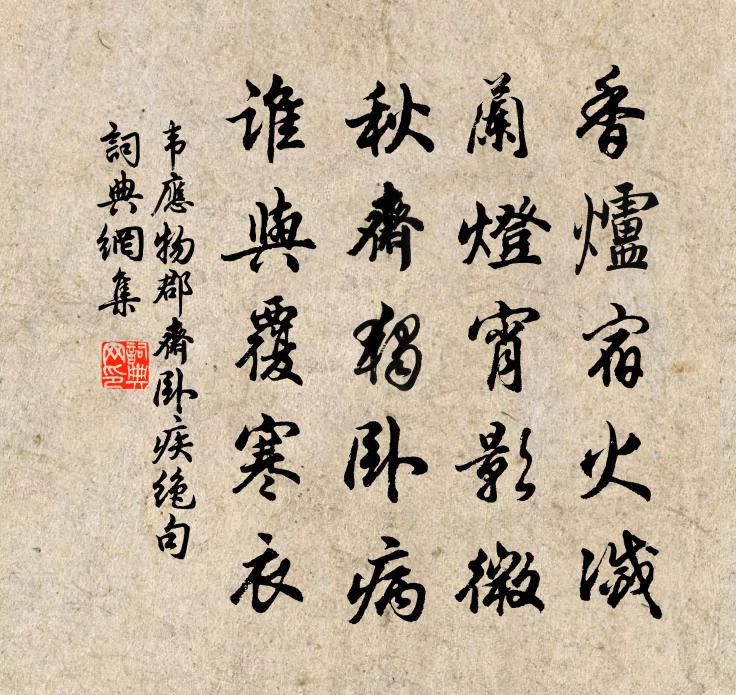 香爐宿火滅
蘭燈宵影微
秋齋獨卧病
誰與覆寒衣
韦應物郡齋卧疾绝句
詞典網集
詞典网印